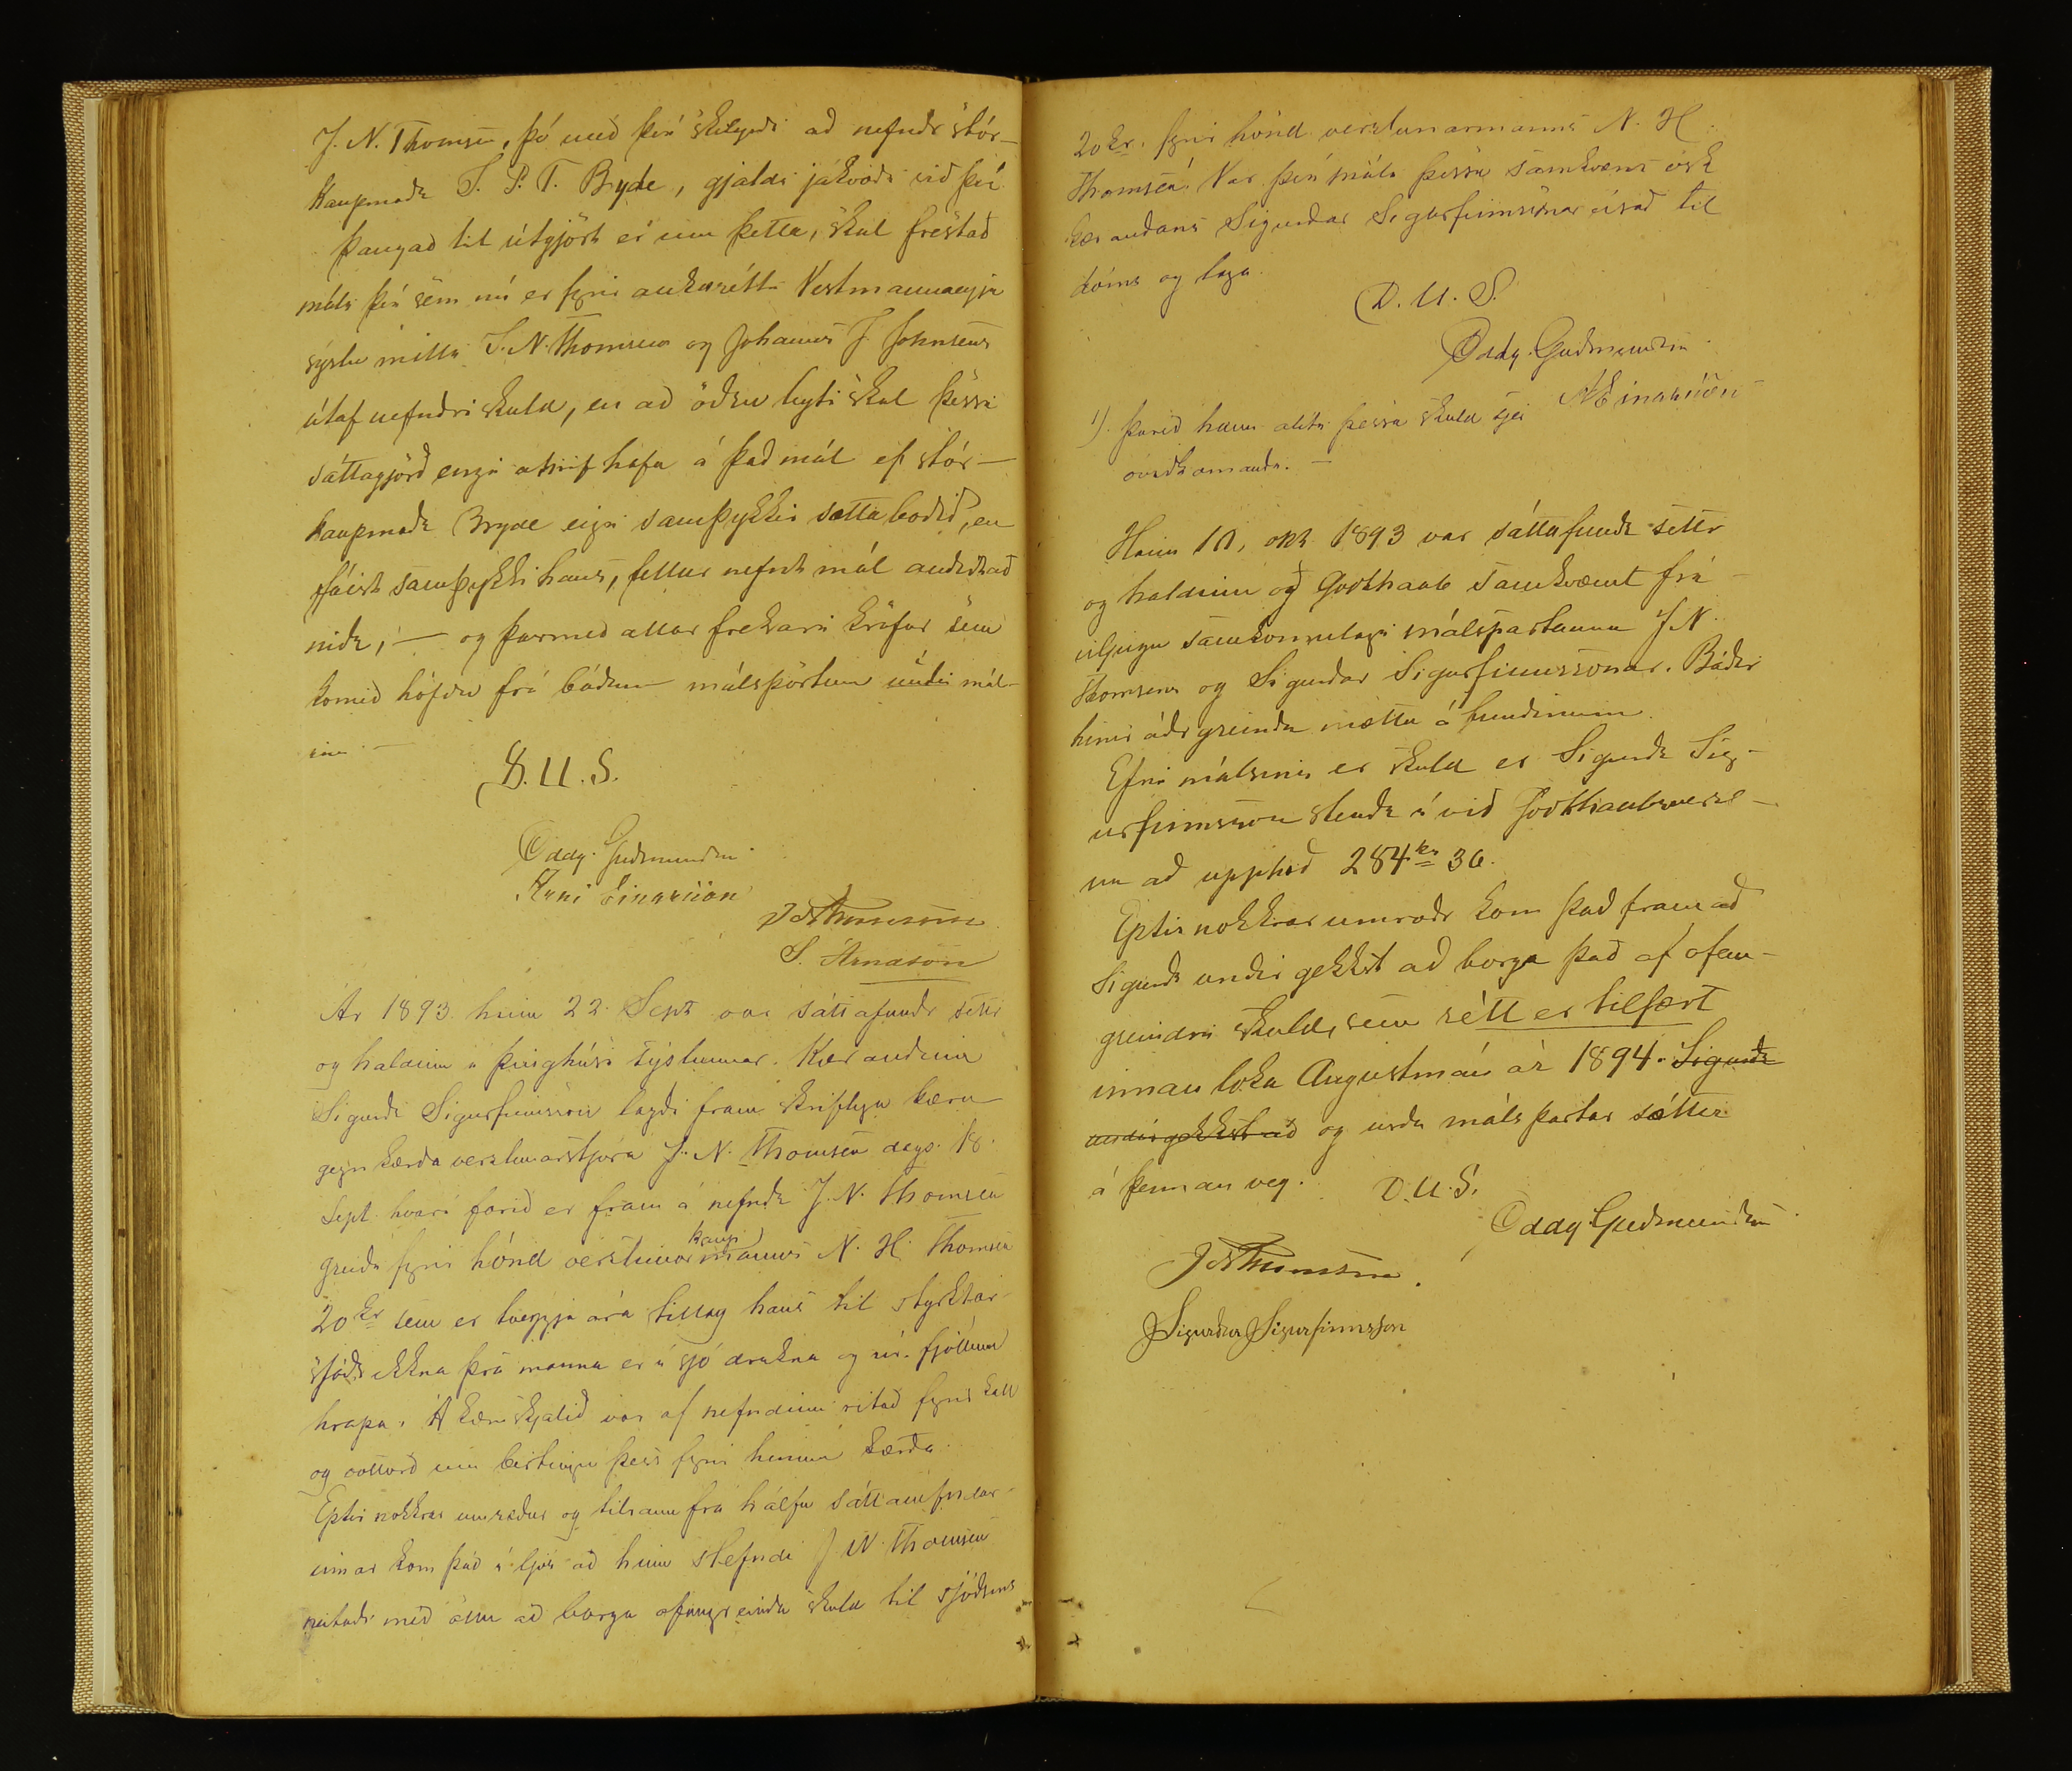 J. N. Thomsen, þó með því skilyrði að nefndr stór-
kaupmaðr J. P. T. Bryde, gjaldi jákvæði við því
Þangað til útgjört er um þetta, skal frestað
máli því sem nú er fyrir aukarétti Vestmannaeyja
sýslu milli J. N. Thomsens og Johanns J. Johnsens
útaf nefndri skuld, en að öðru leyti skal þessi
sáttagjörð engin áhrif hafa á það mál ef stór-
kaupmaðr Bryde eigi samþykkir sættaboðið, en
fáist samþykki hans, fellur nefnt mál
niðr, — og þarmeð allar frekari kröfur sem
komið höfðu frá báðum málspörtum undir mál-
inu. —
D. U. S.
Oddg. Guðmundsen
Árni Einarsson
J N Thomsen
S. Árnason
Ár 1893 hinn 22. Sept var sáttafundr settr
og haldinn í þinghúsi sýslunnar. Kærandinn
Sigurðr Sigurfinnsson lagði fram skriflega kæru
gegn kærða verzlunarstjóra J. N. Thomsen dags. 18.
Sept. hvarí farið er fram á nefndr J. N. Thomsen
greiði fyrir hönd verslunar manns N. H. Thomsen
kaup
20 kr sem er tveggja ára tillag hans til styrktar-
sjóðs ekkna þeirra manna er í sjó drukna og úr fjöllum
hrapa. Á kæruskjalið var af nefndinni ritað fyrirkall
og vottorð um birtingu þess fyrir hinum kærða.
Eptir nokkrar umræður og tilraun frá hálfu sáttanefndar-
innar kom það í ljós að hinn stefndi J. N. Thomsen
neitaði með öllu að borga ofangreinda skuld til sjóðsins
20 kr. fyrir hönd verslunarmanns N. H.
Thomsen. Var því máli þessu samkvæmt ósk
kærandans Sigurðar Sigurfinnssonar vísað til
dóms og laga.
D. U. S.
Oddg. Guðmundsen
Á Einarsson
1). Þareð hann áliti þessa skuld sjer
óviðkomandi. —
Hinn 10. okt 1893 var sáttafundr settr
og haldinn að Godthaab samkvæmt frí-
viljugu samkomulagi málspartanna J. N.
Thomsens og Sigurðar Sigurfinnssonar. Báðir
hinir áðr greindu mættu á fundinum.
Efni málsins er skuld er Sigurðr Sig-
urfinnsson stendr í við Godthaabsversl-
un að upphæð 284 kr 36.
Eptir nokkrar umræðr kom það fram að
Sigurðr undir gekkst að borga það af ofan-
greindri skuld, sem rétt er tilfært
innan loka Augustmán ár 1894. Sigurðr
undirgekkst að og urðu málspartar sáttir
á þennan veg. D. U. S.
Oddg Guðmundsen
J N Thomsen.
Sigurður Sigurfinnsson